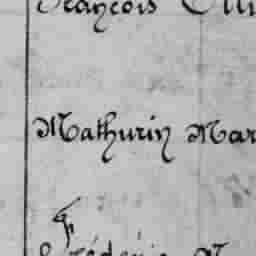 François
Mathurin Mar
Frédéric